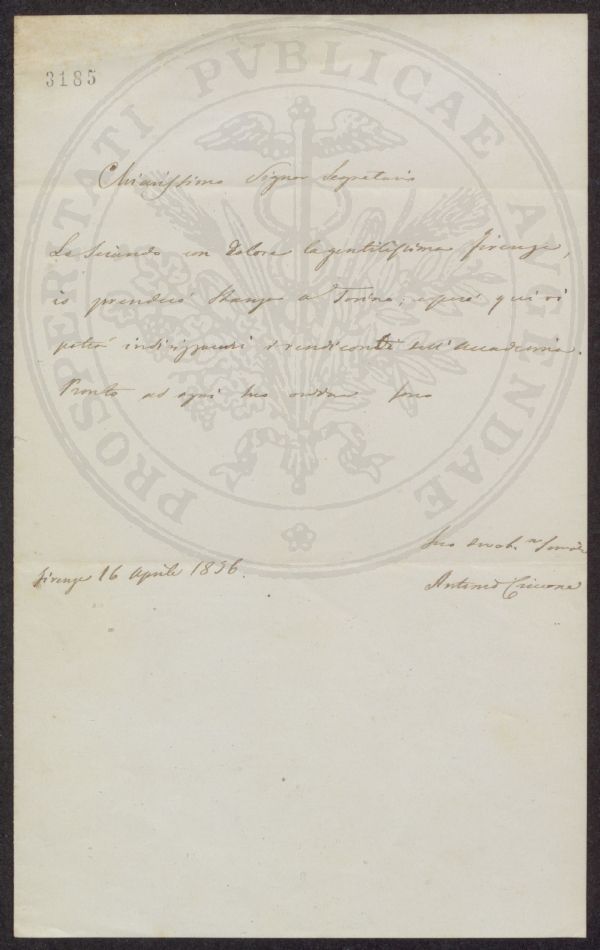 3185
PROSPERITATI PVBLICAE AVGENDAE
Chiarissimo Signor Segretario
Lasciando con dolore la gentilissima Firenze,
io prenderò stanza a Torino; epperò quivi
potrà indirizzarmi i rendiconti dell'Accademia.
Pronto ad ogni suo ordine sono
Suo
Firenze 16 Aprile 1856.
Antonio Ciccone